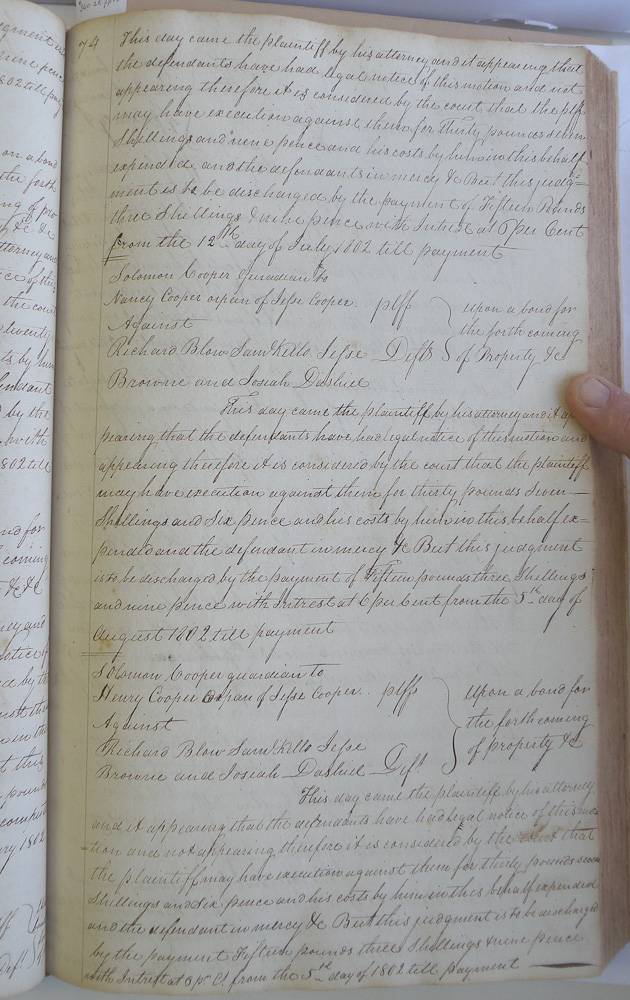 74
This day came the plaintiff by his attorney and it appearing that
the defendants have had legal notice of this motion and not
appearing therefore it is considered by the court that the plff
may have execution against them for Thirty pounds seven
Shillings and nine pence and his costs by him in this behalf
expended and the defendants in mercy &c But this judg=
ment is to be discharged by the payment of Fifteen Pounds
three Shillings & nine pence with Intrest at 6 per Cent
from the 12th day of July 1802 till payment
Solomon Cooper guradian to
Nancy Cooper orpan of Jesse Cooper. plff
Against
Richard Blow Saml Kello Jesse Defts
Browne and Josiah Dashiel
upon a bond for
the forth coming
of Property &c
This day came the plaintiff by his attorney and it ap
pearing that the defendants have had legal notice of this motion and
appearing therefore it is considered by the court that the plaintiff
may have execution against them for thirty pounds Seven
Shillings and Six pence and his costs by him in this behalf ex=
pended and the defendant in mercy &c But this judgment
is to be discharged by the payment of Fifteen pounds three Shillings
and nine pence with Intrest at 6 per Cent from the 5th day of
August 1802 till payment
Solomon Cooper guardian to
Henry Cooper Orpan of Jesse Cooper. plff
Against
Richard Blow Saml Kello Jesse
Browne and Josiah Dashiel Deft
Upon a bond for
the forth coming
of property &c
This day came the plaintiff by his attorney
and it appearing that the defendants have had legal notice of this mo
tion and not appearing therefore it is considered by the court that
the plaintiff may have execution against them for thirty pounds seven
Shillings and Six pence and his costs by him in this behalf expended
and the defendant in mercy &c But this judgment is to be discharged
by the payment Fifteen pounds three Shillings & nine pence
with Intrest at 6 pr Ct. from the 5th day of 1802 till payment